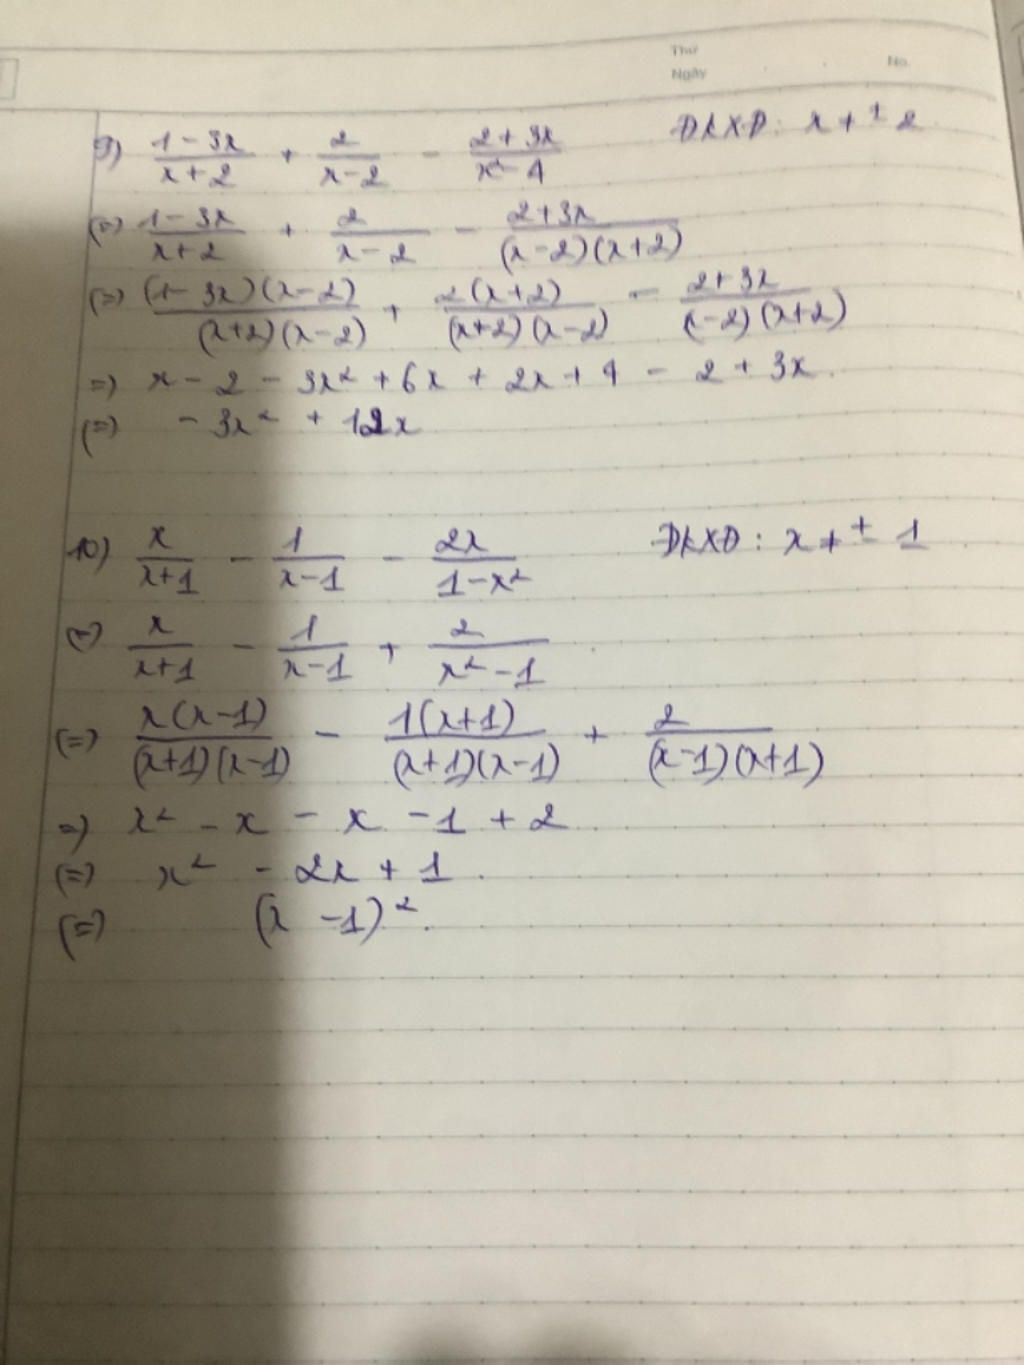 Thứ
Ngày
No.
9) \frac{1-3x}{x+2} + \frac{2}{x-2} - \frac{2+3x}{x²-4} ĐKXĐ: x ≠ ± 2
(=) \frac{1-3x}{x+2} + \frac{2}{x-2} - \frac{2+3x}{(x-2)(x+2)}
(=) \frac{(1-3x)(x-2)}{(x+2)(x-2)} + \frac{2(x+2)}{(x+2)(x-2)} - \frac{2+3x}{(x-2)(x+2)}
=) x - 2 - 3x² + 6x + 2x + 4 - 2 + 3x.
(=) - 3x² + 12x
10) \frac{x}{x+1} - \frac{1}{x-1} - \frac{2x}{1-x²} ĐKXĐ: x ≠ ± 1
(=) \frac{x}{x+1} - \frac{1}{x-1} + \frac{2}{x²-1}
(=) \frac{x(x-1)}{(x+1)(x-1)} - \frac{1(x+1)}{(x+1)(x-1)} + \frac{2}{(x-1)(x+1)}
=) x² - x - x - 1 + 2
(=) x² - 2x + 1.
(=) (x - 1)².